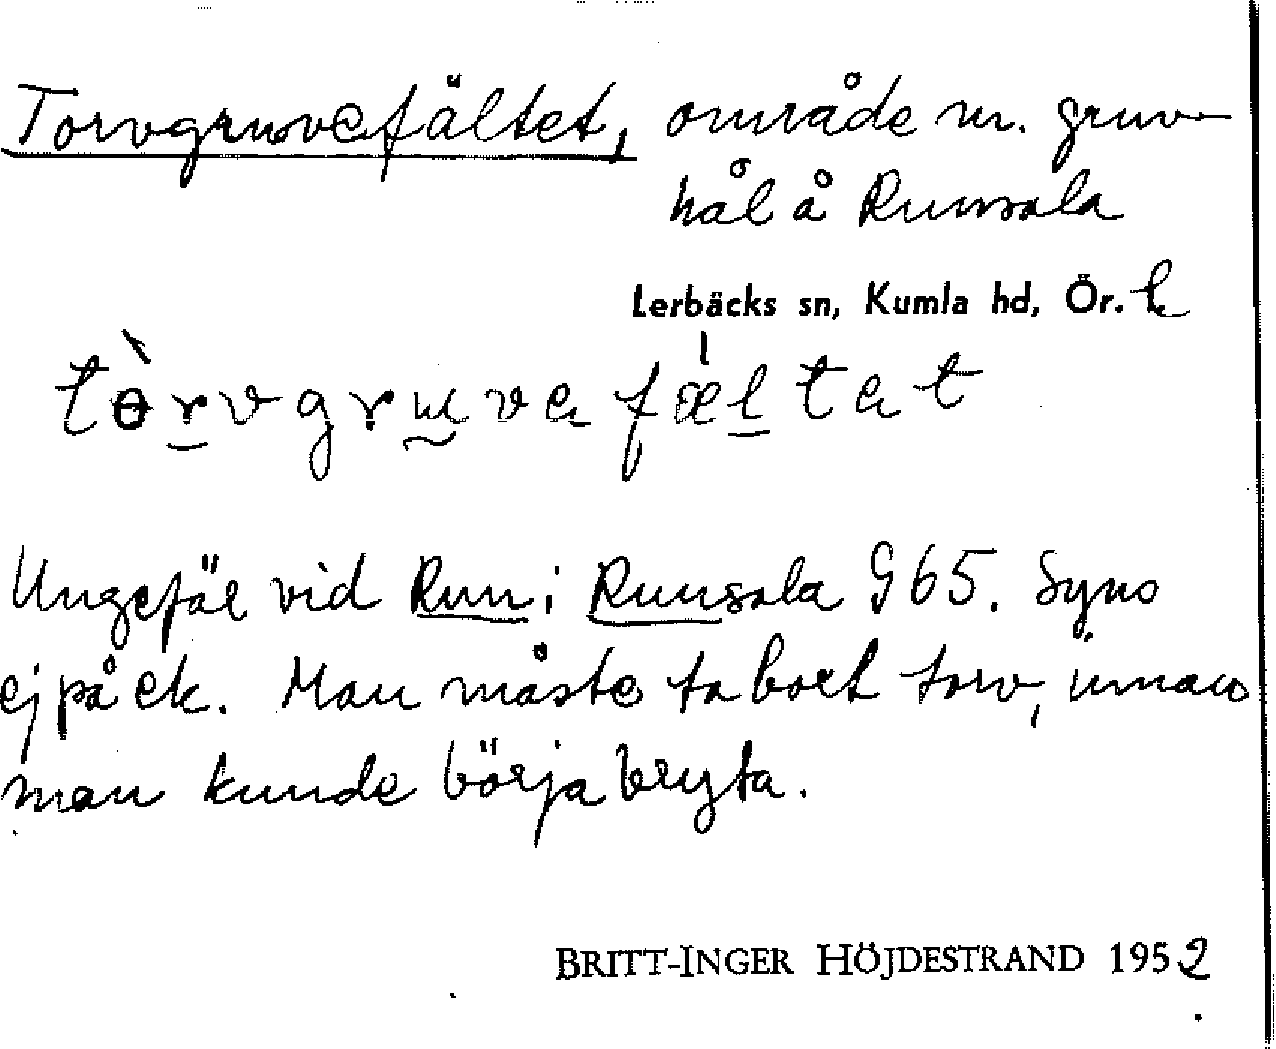 Torvgruvefältet, område m. gruv-
hål å Runsala
Lerbäcks sn, Kumla hd, Ör. l
tòrvgruvefæ̍ltet
Ungefär vid Run i Runsala 965. Syns
ej på ek. Man måste ta bort torv, innan
man kunde börja bryta.
BRITT-INGER HÖJDESTRAND 1952